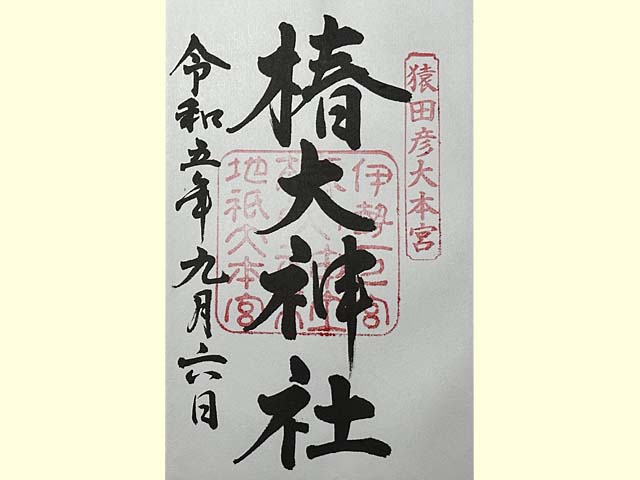 猿田彦大本宮
椿大神社
伊勢一之宮
地祇大本宮
令和五年九月六日